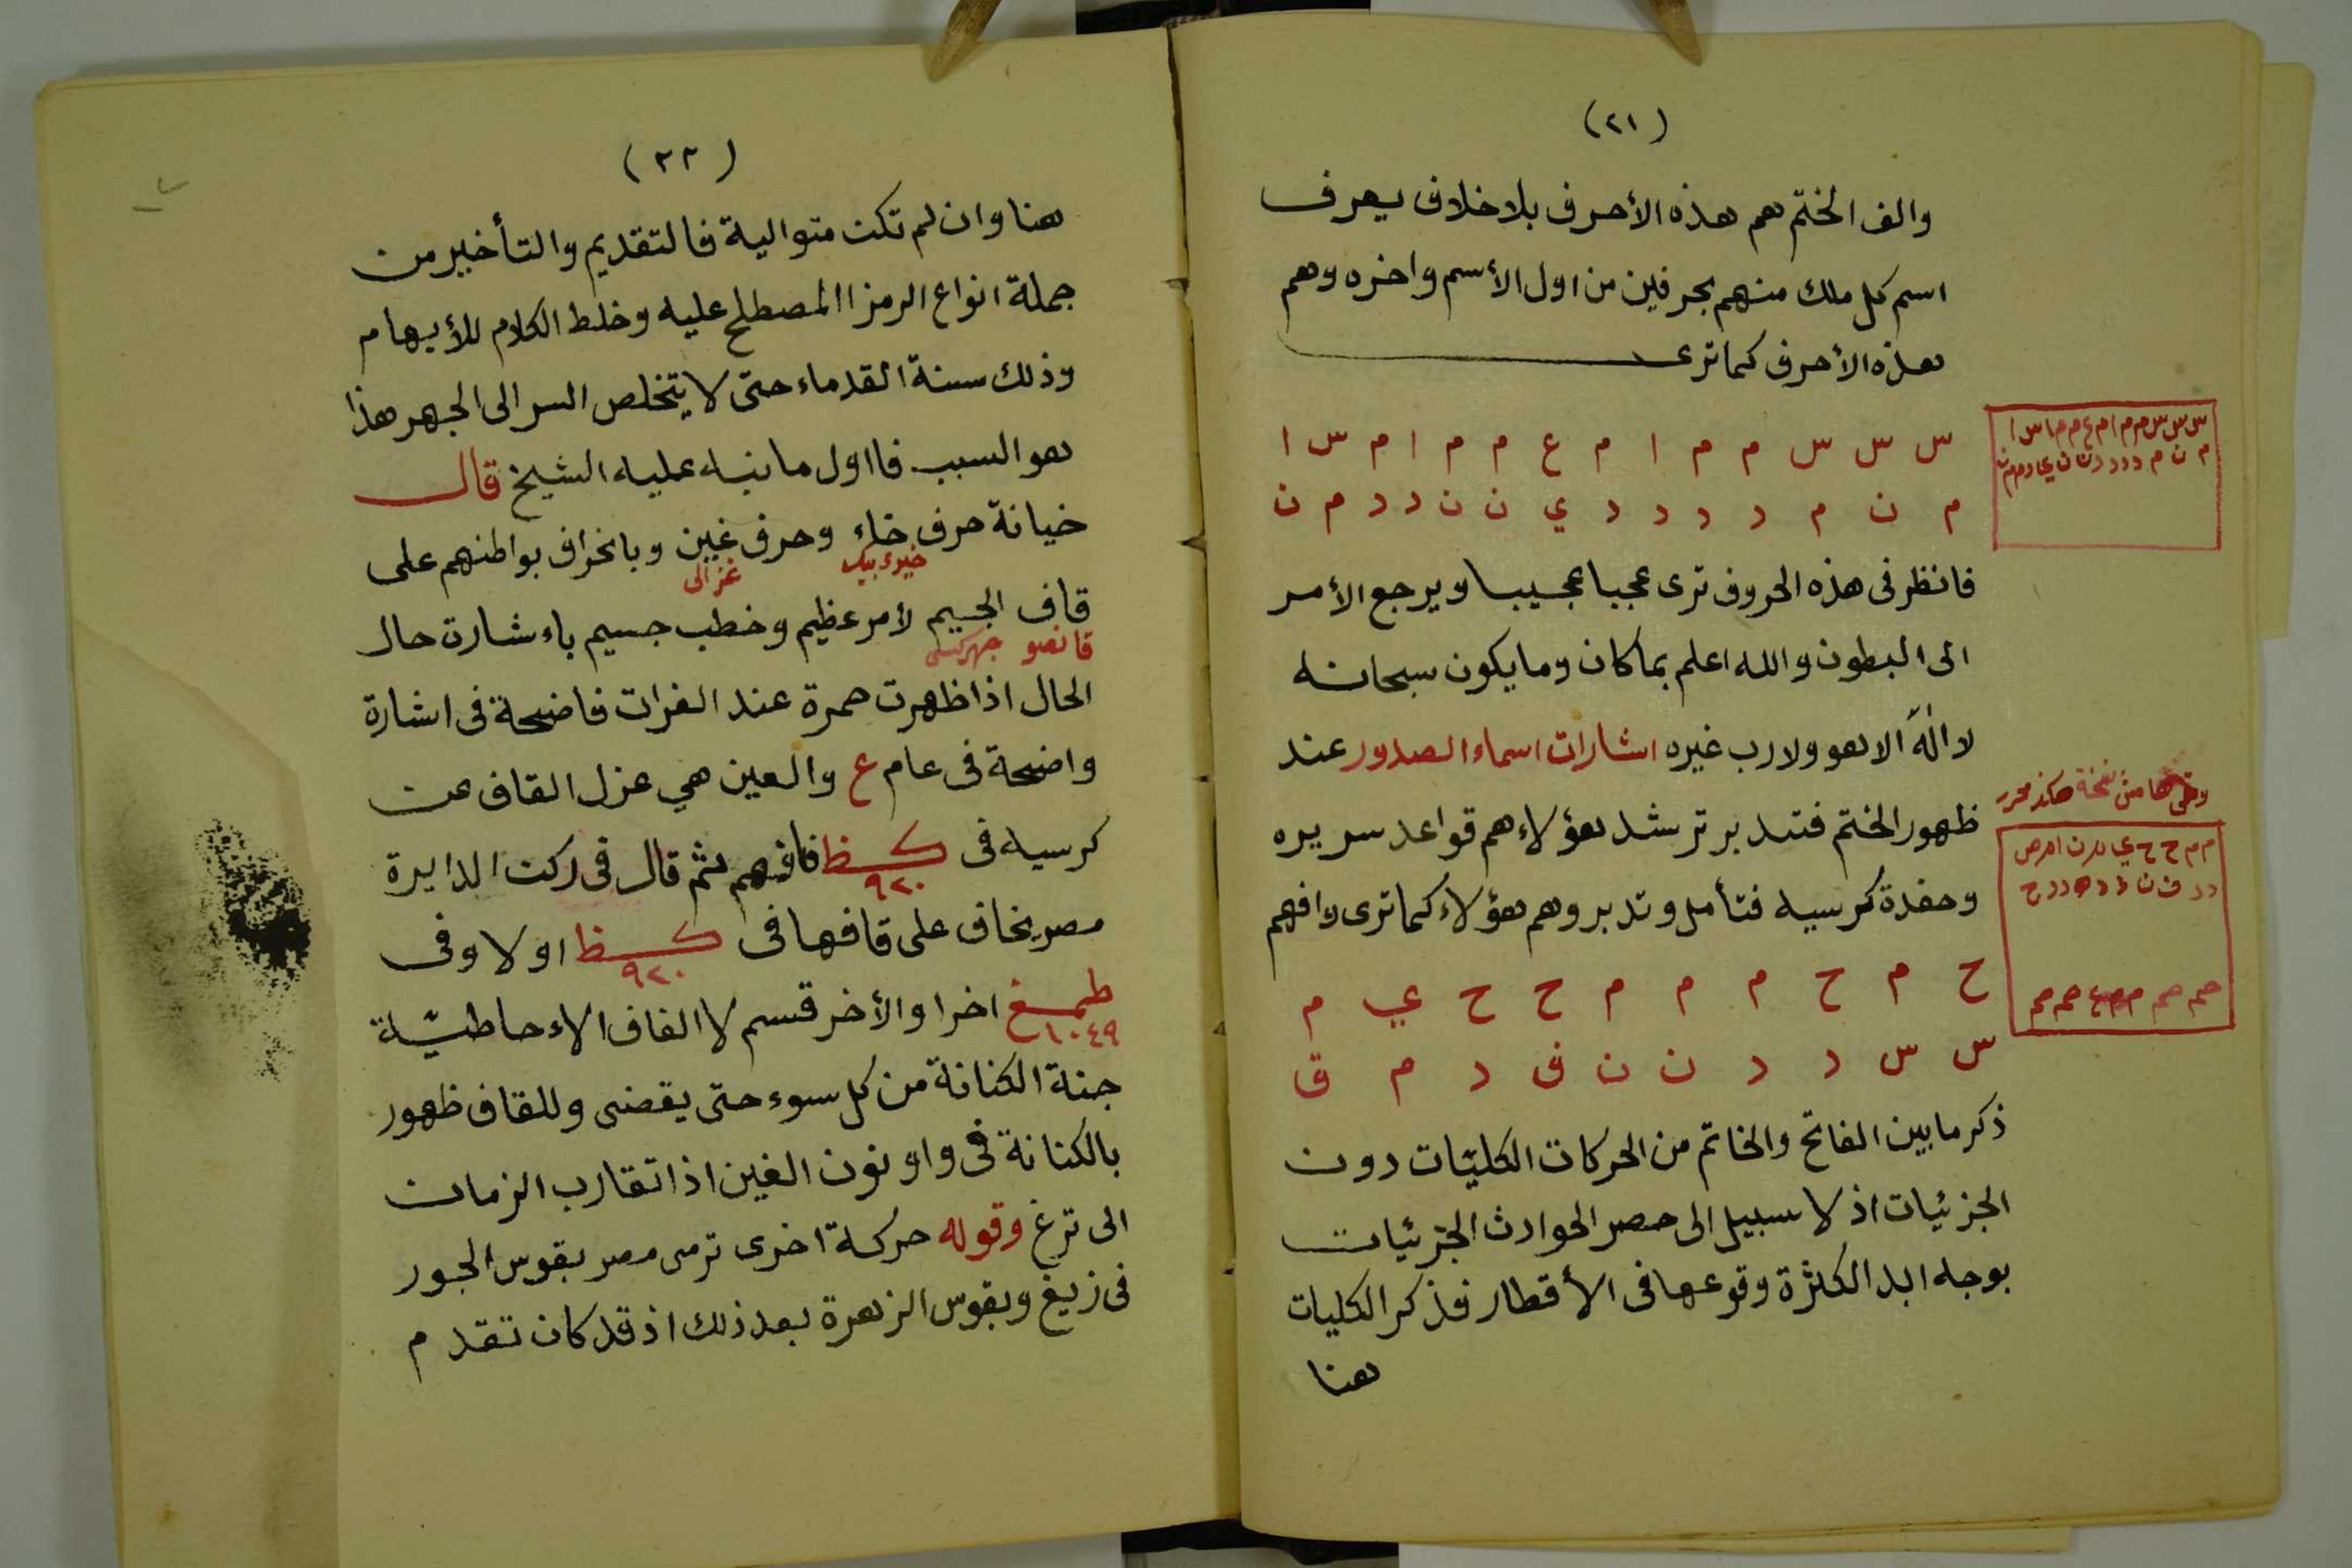 (٢١)
والف الختم هم هذه الأحرف بلا خلاف يعرف
اسم كل ملك منهم بحرفين من اول الأسم واخره وهم
هذه الأحرف كما ترى
س س س م م ا م ع م م ا م س ا
م ن م د د د د ي ن ن د د م ن
فانظر فى هذه الحروف ترى عجبا عجيبا ويرجع الأمر
الى البطون والله اعلم بما كان وما يكون سبحانه
لا اله الا هو ولا رب غيره اشارات اسماء الصدور عند
وفى هامش نسخة هكذا محرر
ظهور الختم فتدبر ترشد هؤلاء هم قواعد سريره
وحفدة كرسيه فتأمل وتدبر وهم هؤلاء كما ترى وافهم
ح م ح م م م ح ح ي م
س س د د ن ن ف د م ق
ذكر ما بين الفاتح والخاتم من الحركات الكليّات دون
الجزئيات اذ لا سبيل الى حصر الحوادث الجزئيات
بوجه ابدا لكثرة وقوعها فى الأقطار فذكر الكليات
هنا
(٢٢)
هنا وان لم تكن متوالية فالتقديم والتأخير من
جملة انواع الرمز االمصطلح عليه وخلط الكلام للأبهام
وذلك سنة القدماء حتى لا يتخلص السر الى الجهر هذا
هو السبب فااول ما نبه عليه الشيخ قال
خيانة حرف خاء وحرف غين وبانخراف بواطنهم على
خيرى بيك غزالى
قاف الجيم لأمر عظيم وخطب جسيم باء شارت حال
قانصو جهركسى
الحال اذا ظهرت حمرة عند الفرات فاضحة فى اشارة
واضحة فى عام ع والعين هي عزل القاف عن
كرسيه فى كظ فافهم ثم قال فى ركن الدايرة
٩٢٠
مصر يخاف على قافها فى كظ اولا وفى
٩٢٠
طمغ اخرا والأخر قسم لا الفاف الاءحاطيّة
١٠٤٩
جنة الكنانة من كل سوء حتى يقضى وللقاف ظهور
بالكنانة فى واو نون الغين اذا تقارب الزمان
الى ترغ وقوله حركة اخرى ترمى مصر بقوس الجور
فى زيغ وبقوس الزهرة بعد ذلك اذ قد كان تقدم